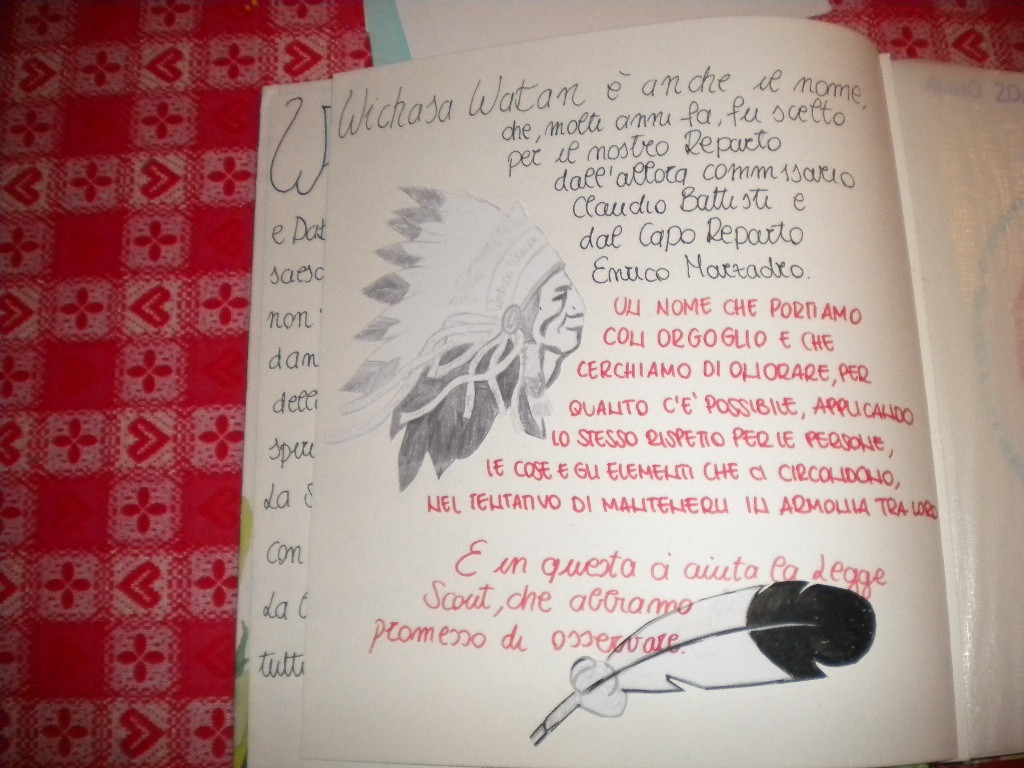 Wichasa Watan è anche il nome,
che, molti anni fa, fu scelto
per il nostro Reparto
dall'allora commissario
Claudio Battisti e
dal Capo Reparto
Enrico Marzadro.
UN NOME CHE PORTIAMO
CON ORGOGLIO E CHE
CERCHIAMO DI ONORARE, PER
QUANTO C'E' POSSIBILE, APPLICANDO
LO STESSO RISPETTO PER LE PERSONE,
LE COSE E GLI ELEMENTI CHE CI CIRCONDONO,
NEL TENTATIVO DI MANTENERLI IN ARMONIA TRA LORO
E in questa ci aiuta la Legge
Scout, che abbiamo
promesso di osservare.
W
e Dat
saesc
non
dan
dell
spir
La S
con
La
tutti